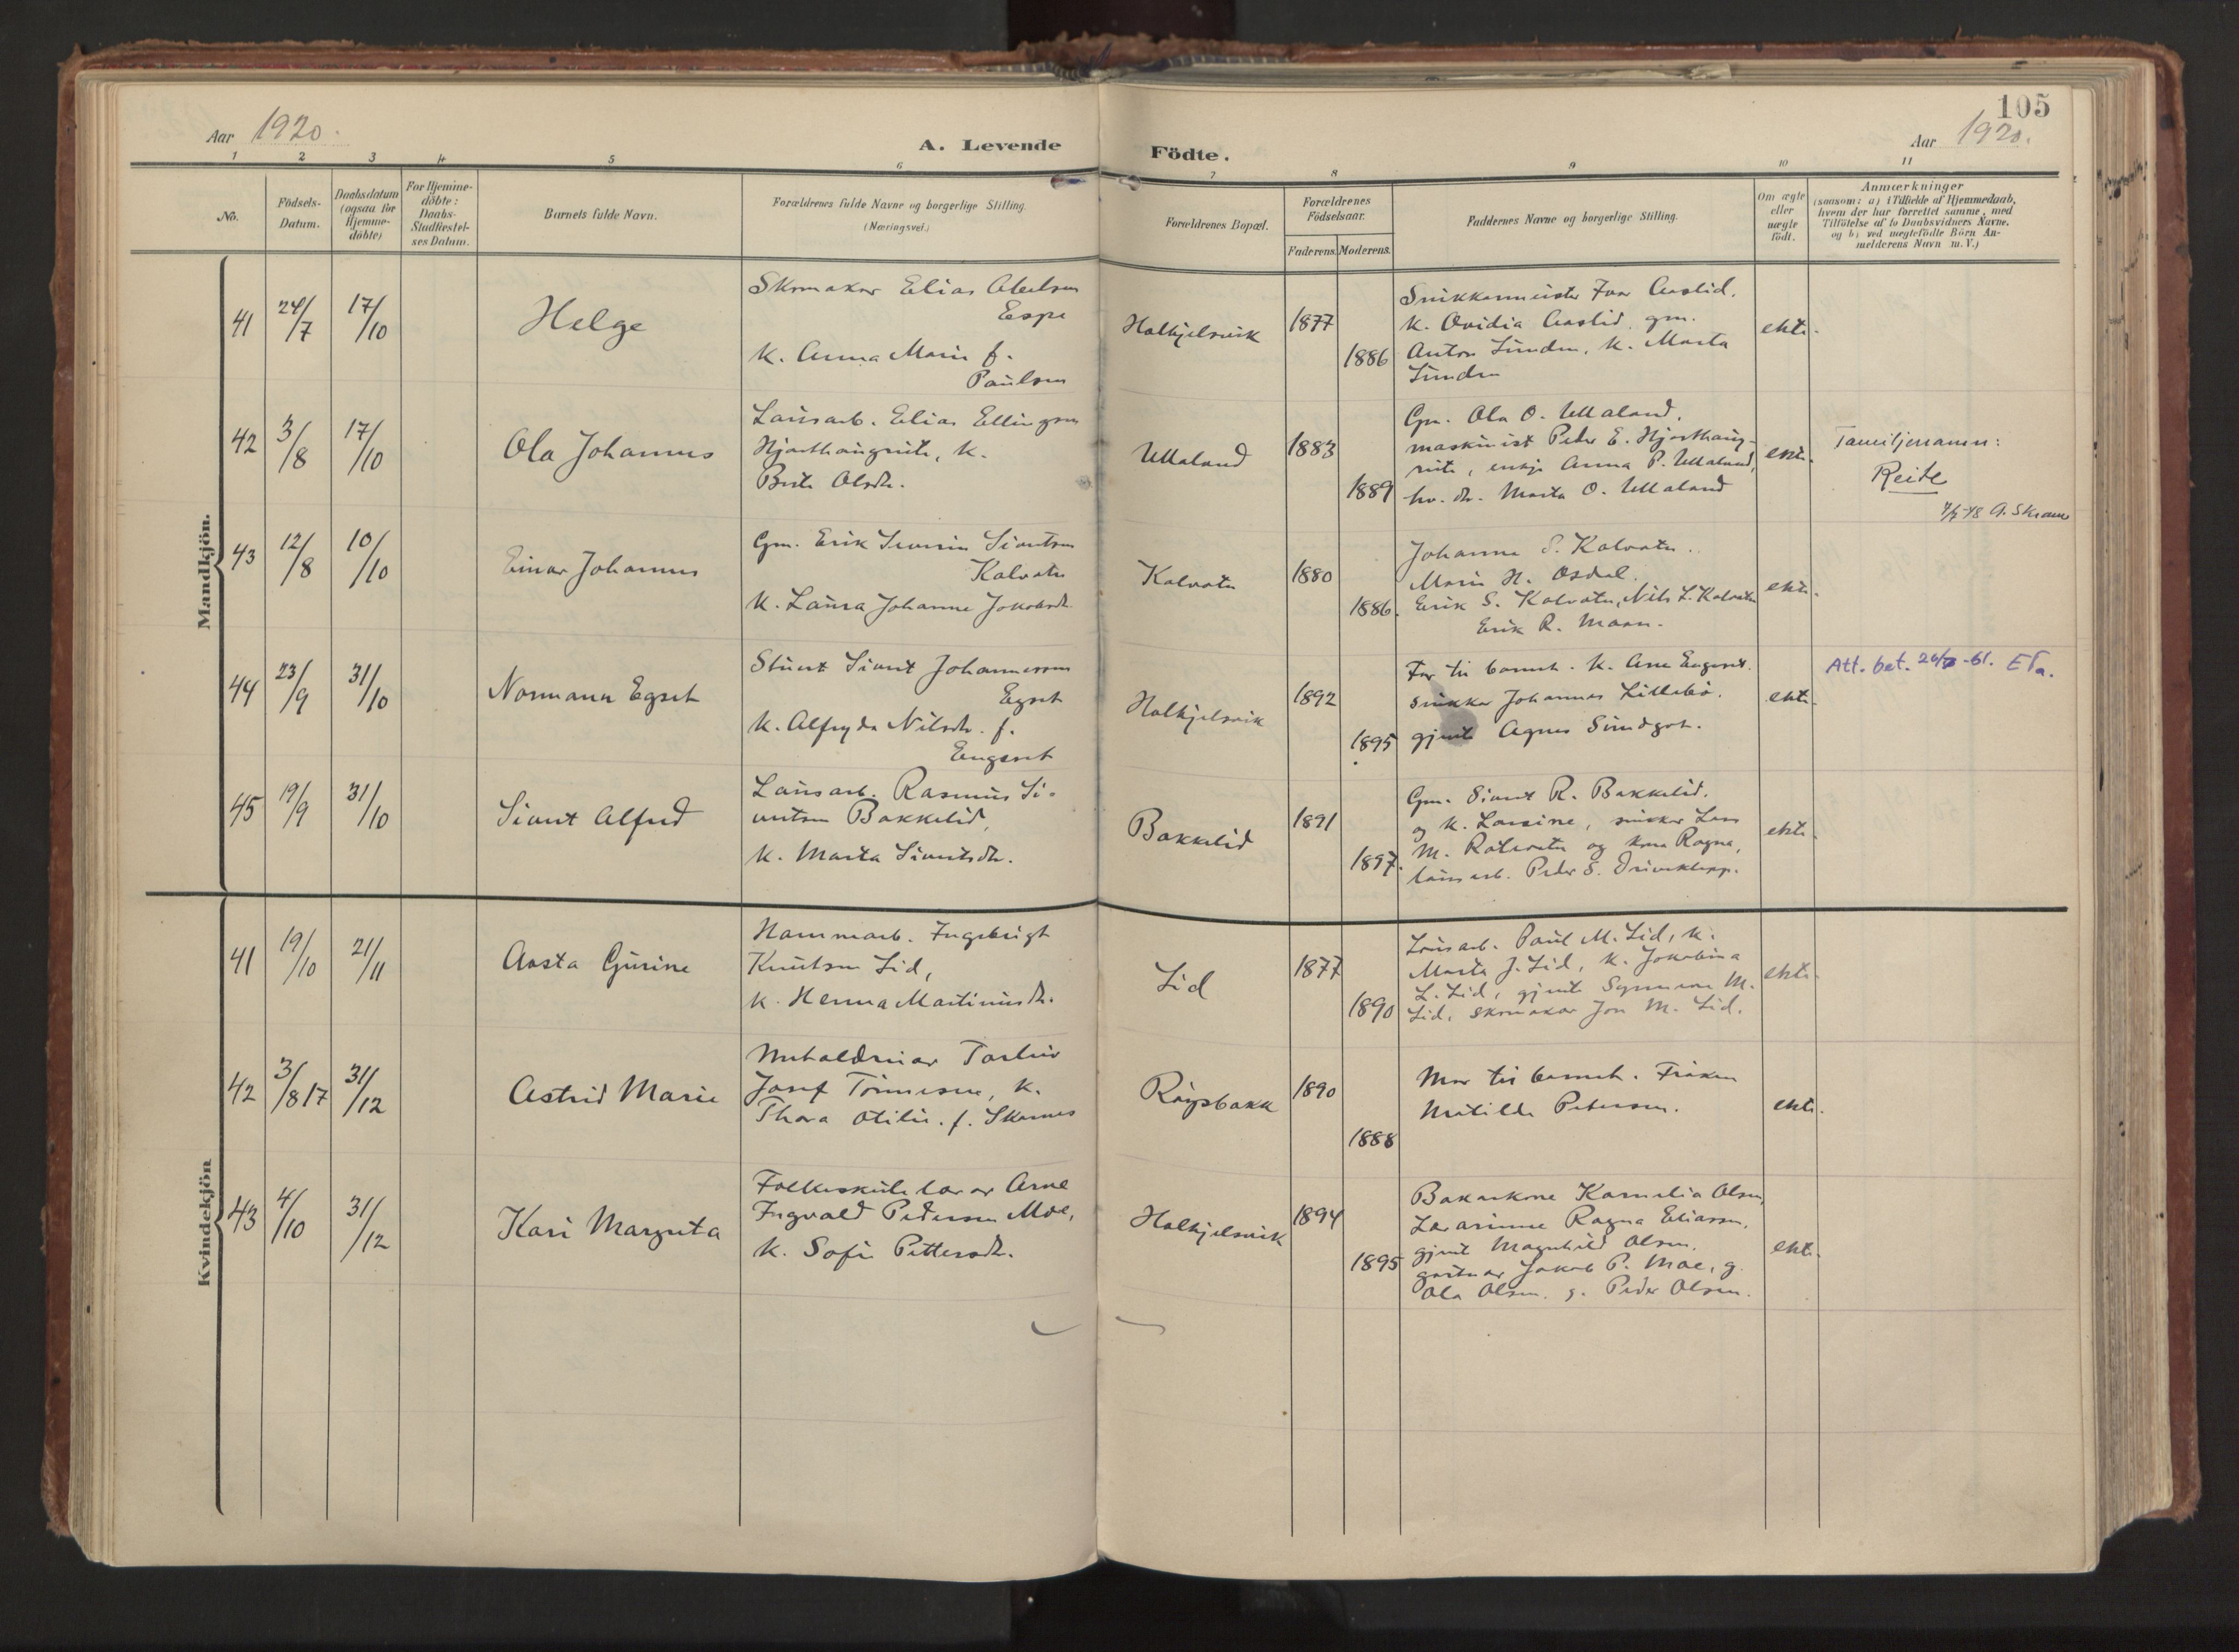 105
Aar 1920.
A. Levende
Födte.
Aar 1920.
1 2 3 4 5 6 7 8 9 10 11
No.
Födsels-
Datum.
Daabsdatum
(ogsaa for
Hjemme-
döbte)
For Hjemme-
döbte:
Daabs-
Stadfæstel-
ses Datum.
Barnets fulde Navn.
Forældrenes fulde Navne og borgerlige Stilling.
(Næringsvei.)
Forældrenes Bopæl.
Forældrenes
Födselsaar.
Faderens. Moderens.
Faddernes Navne og borgerlige Stilling.
Om ægte
eller
uægte
födt.
Anmærkninger
(saasom: a) i Tilfælde af Hjemmedaab,
hvem der har forrettet samme, med
Tilföielse af to Daabsvidners Navne.
og b) ved uægtefödte Börn An-
melderens Navn m. V.)
Mandkjön.
41 24/7 17/10
Helge
Skomakar Elias Abelsen
Espe
K. Anna Marie f.
Paulsen
Halkjelsvik
1877
1886
Snikkarmeister Ivar Aaslid.
K. Ovidia Aaslid, gm.
Anton Sunden, K. Marta
Sunden
ekte.
42 3/8 17/10
Ola Johannes
Lausarb. Elias Ellingsen
Hjorthaugreite, K.
Brite Olsdtr.
Ullaland
1883
1889
Gm. Ola O. Ullaland,
maskinist Peder E. Hjorthaug-
reite, enkje Anna P. Ullaland,
hv. dtr. Marta O. Ullaland
ekte.
Familjenamn:
Reite
4/7-48 A. Skram
43 12/8 10/10
Einar Johannes
Gm. Erik Severin Sivertsen
Kalvatn
K. Laura Johanne Jakobsdtr.
Kalvatn
1880
1886.
Johanne S. Kalvatn.
Marie H. Osdal.
Erik S. Kalvatn, Nils L. Kalvatn
Erik R. Maan.
ekte.
44 23/9 31/10
Normann Egset
Stuert Sivert Johannessen
Egset
K. Alfryda Nilsdtr. f.
Engeset
Halkjelsvik
1892
1895
Far til barnet. K. Ane Engeset.
snikkar Johannes Lillebö.
gjente Agnes Sundgot.
ekte.
Att. bet. 26/7-61. E Fa.
45 19/9 31/10
Sivert Alfred
Lausarb. Rasmus Si-
vertsen Bakkelid,
K. Marta Sivertsdtr.
Bakkelid
1891
1897.
Gm. Sivert R. Bakkelid.
og K. Larsine, snikkar Lars
M. Rotevatn og kona Ragna,
lausarb. Peder S. Driveklepp.
ekte.
Kvindekjön
41 19/10 21/11
Aasta Gurine
Hammarb. Ingebrigt
Knutsen Lid,
K. Henna Martinusdtr.
Lid
1877
1890
Lausarb. Paul M. Lid, K.
Marta J. Lid, K. Jakobina
L. Lid, gjente Synnøve M.
Lid, skomakar Jon M. Lid.
ekte.
42 3/8 17 31/12
Astrid Marie
Torleiv
Josef Tönnesen, K.
Thora Otilie. f. Skarnes
Röysbakk
1890
1888
Mor til barnet. Fröken
Matilde Petersen.
ekte.
43 4/10 31/12
Kari Margreta
Folkeskulelærar Arne
Ingvald Pedersen Moe,
K. Sofie Pettersdtr.
Halkjelsvik
1894
1895
Bakarkone Kornelia Olsen,
Lærarinne Ragna Eliassen,
gjente Magnhild Olsen,
gartnar Jakob P. Moe, g.
Ola Olsen. g. Peder Olsen.
ekte.